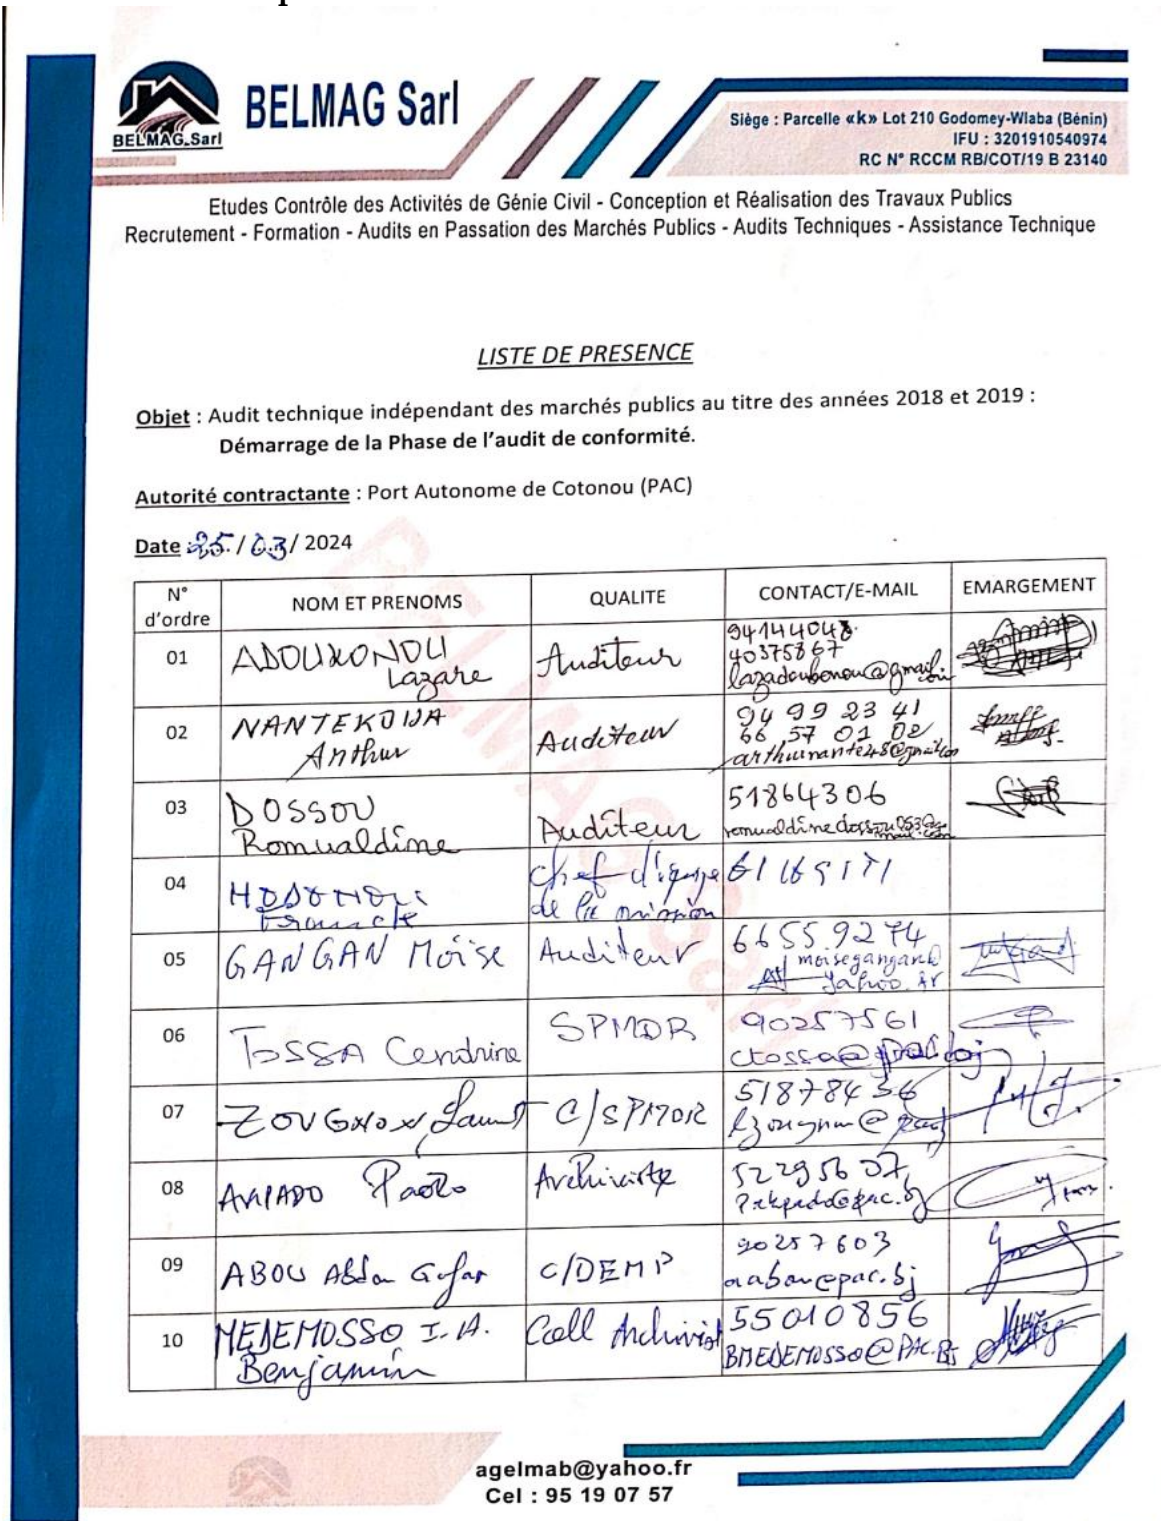 BELMAG Sarl
BELMAG.Sarl
Siège : Parcelle «k» Lot 210 Godomey-Wlaba (Bénin)
IFU : 3201910540974
RC N° RCCM RB/COT/19 B 23140
Etudes Contrôle des Activités de Génie Civil - Conception et Réalisation des Travaux Publics
Recrutement - Formation - Audits en Passation des Marchés Publics - Audits Techniques - Assistance Technique
LISTE DE PRESENCE
Objet : Audit technique indépendant des marchés publics au titre des années 2018 et 2019 :
Démarrage de la Phase de l'audit de conformité.
Autorité contractante : Port Autonome de Cotonou (PAC)
Date 25/03/2024
N° d'ordre NOM ET PRENOMS QUALITE CONTACT/E-MAIL EMARGEMENT
01 ADOUKONOU Lazare Auditeur 94144048 40375867
02 NANTEKOUA Arthur Auditeur 94 99 23 41 66 57 01 02 arthurnante48@gmail.com
03 DOSSOU Romualdine Auditeur 51864306
04 Chef d'équipe de la mission
05 GANGAN Moïse Auditeur 66559274
06 TOSSA Cendrine SPMDR 90257561 ctossa@pac.bj
07 51878436
08 Paolo Archiviste
09 ABOU Abdou Gafar C/DEMP 90257603 aabou@pac.bj
10 MEDEMOSSO I. A. Benjamin Coll Archivist 55010856 BMEDEMOSSO@PAC.BJ
agelmab@yahoo.fr
Cel : 95 19 07 57